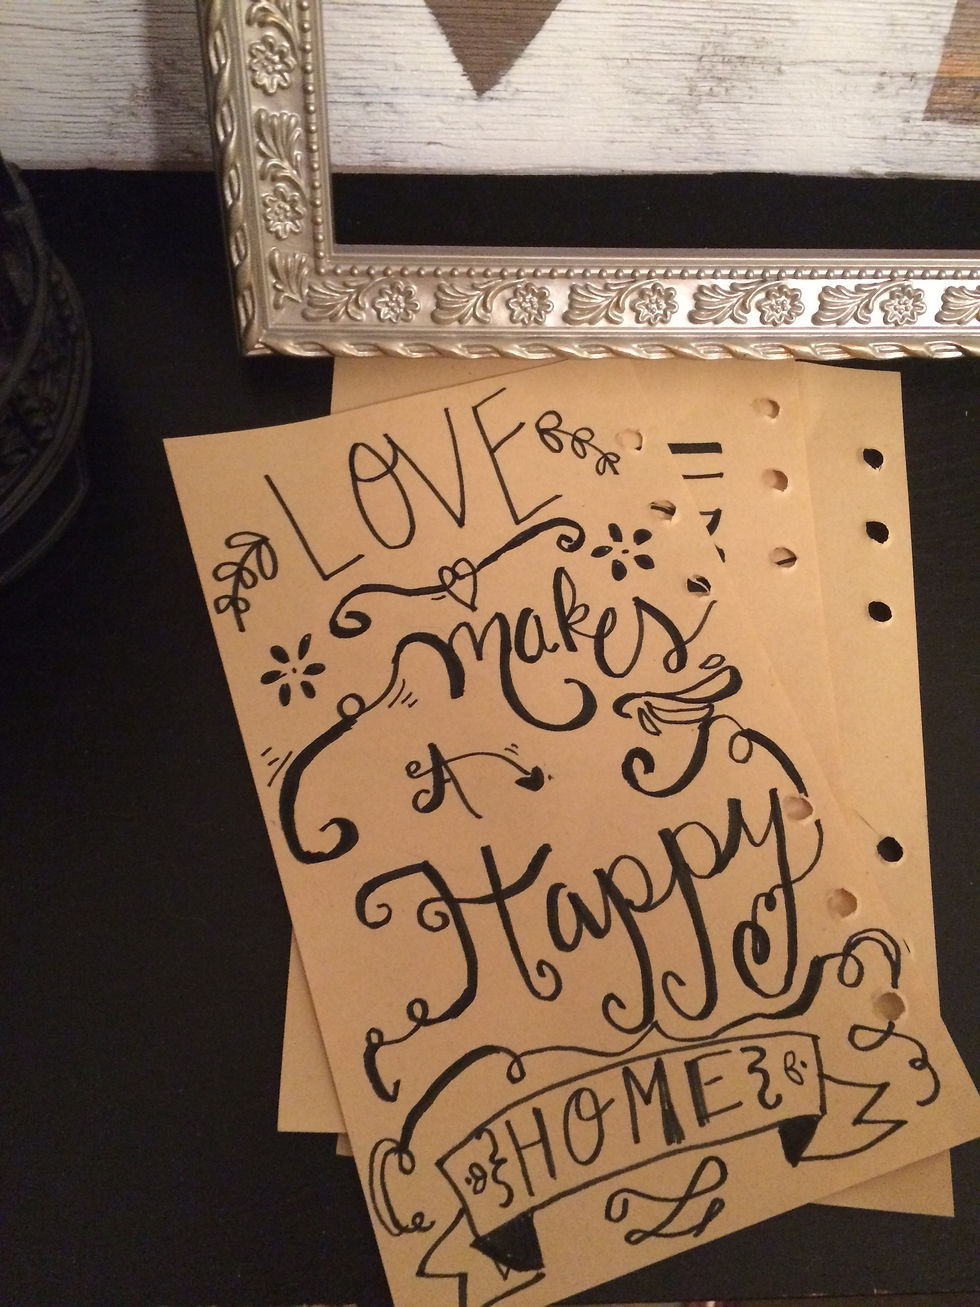 LOVE
makes
A
Happy
{HOME}